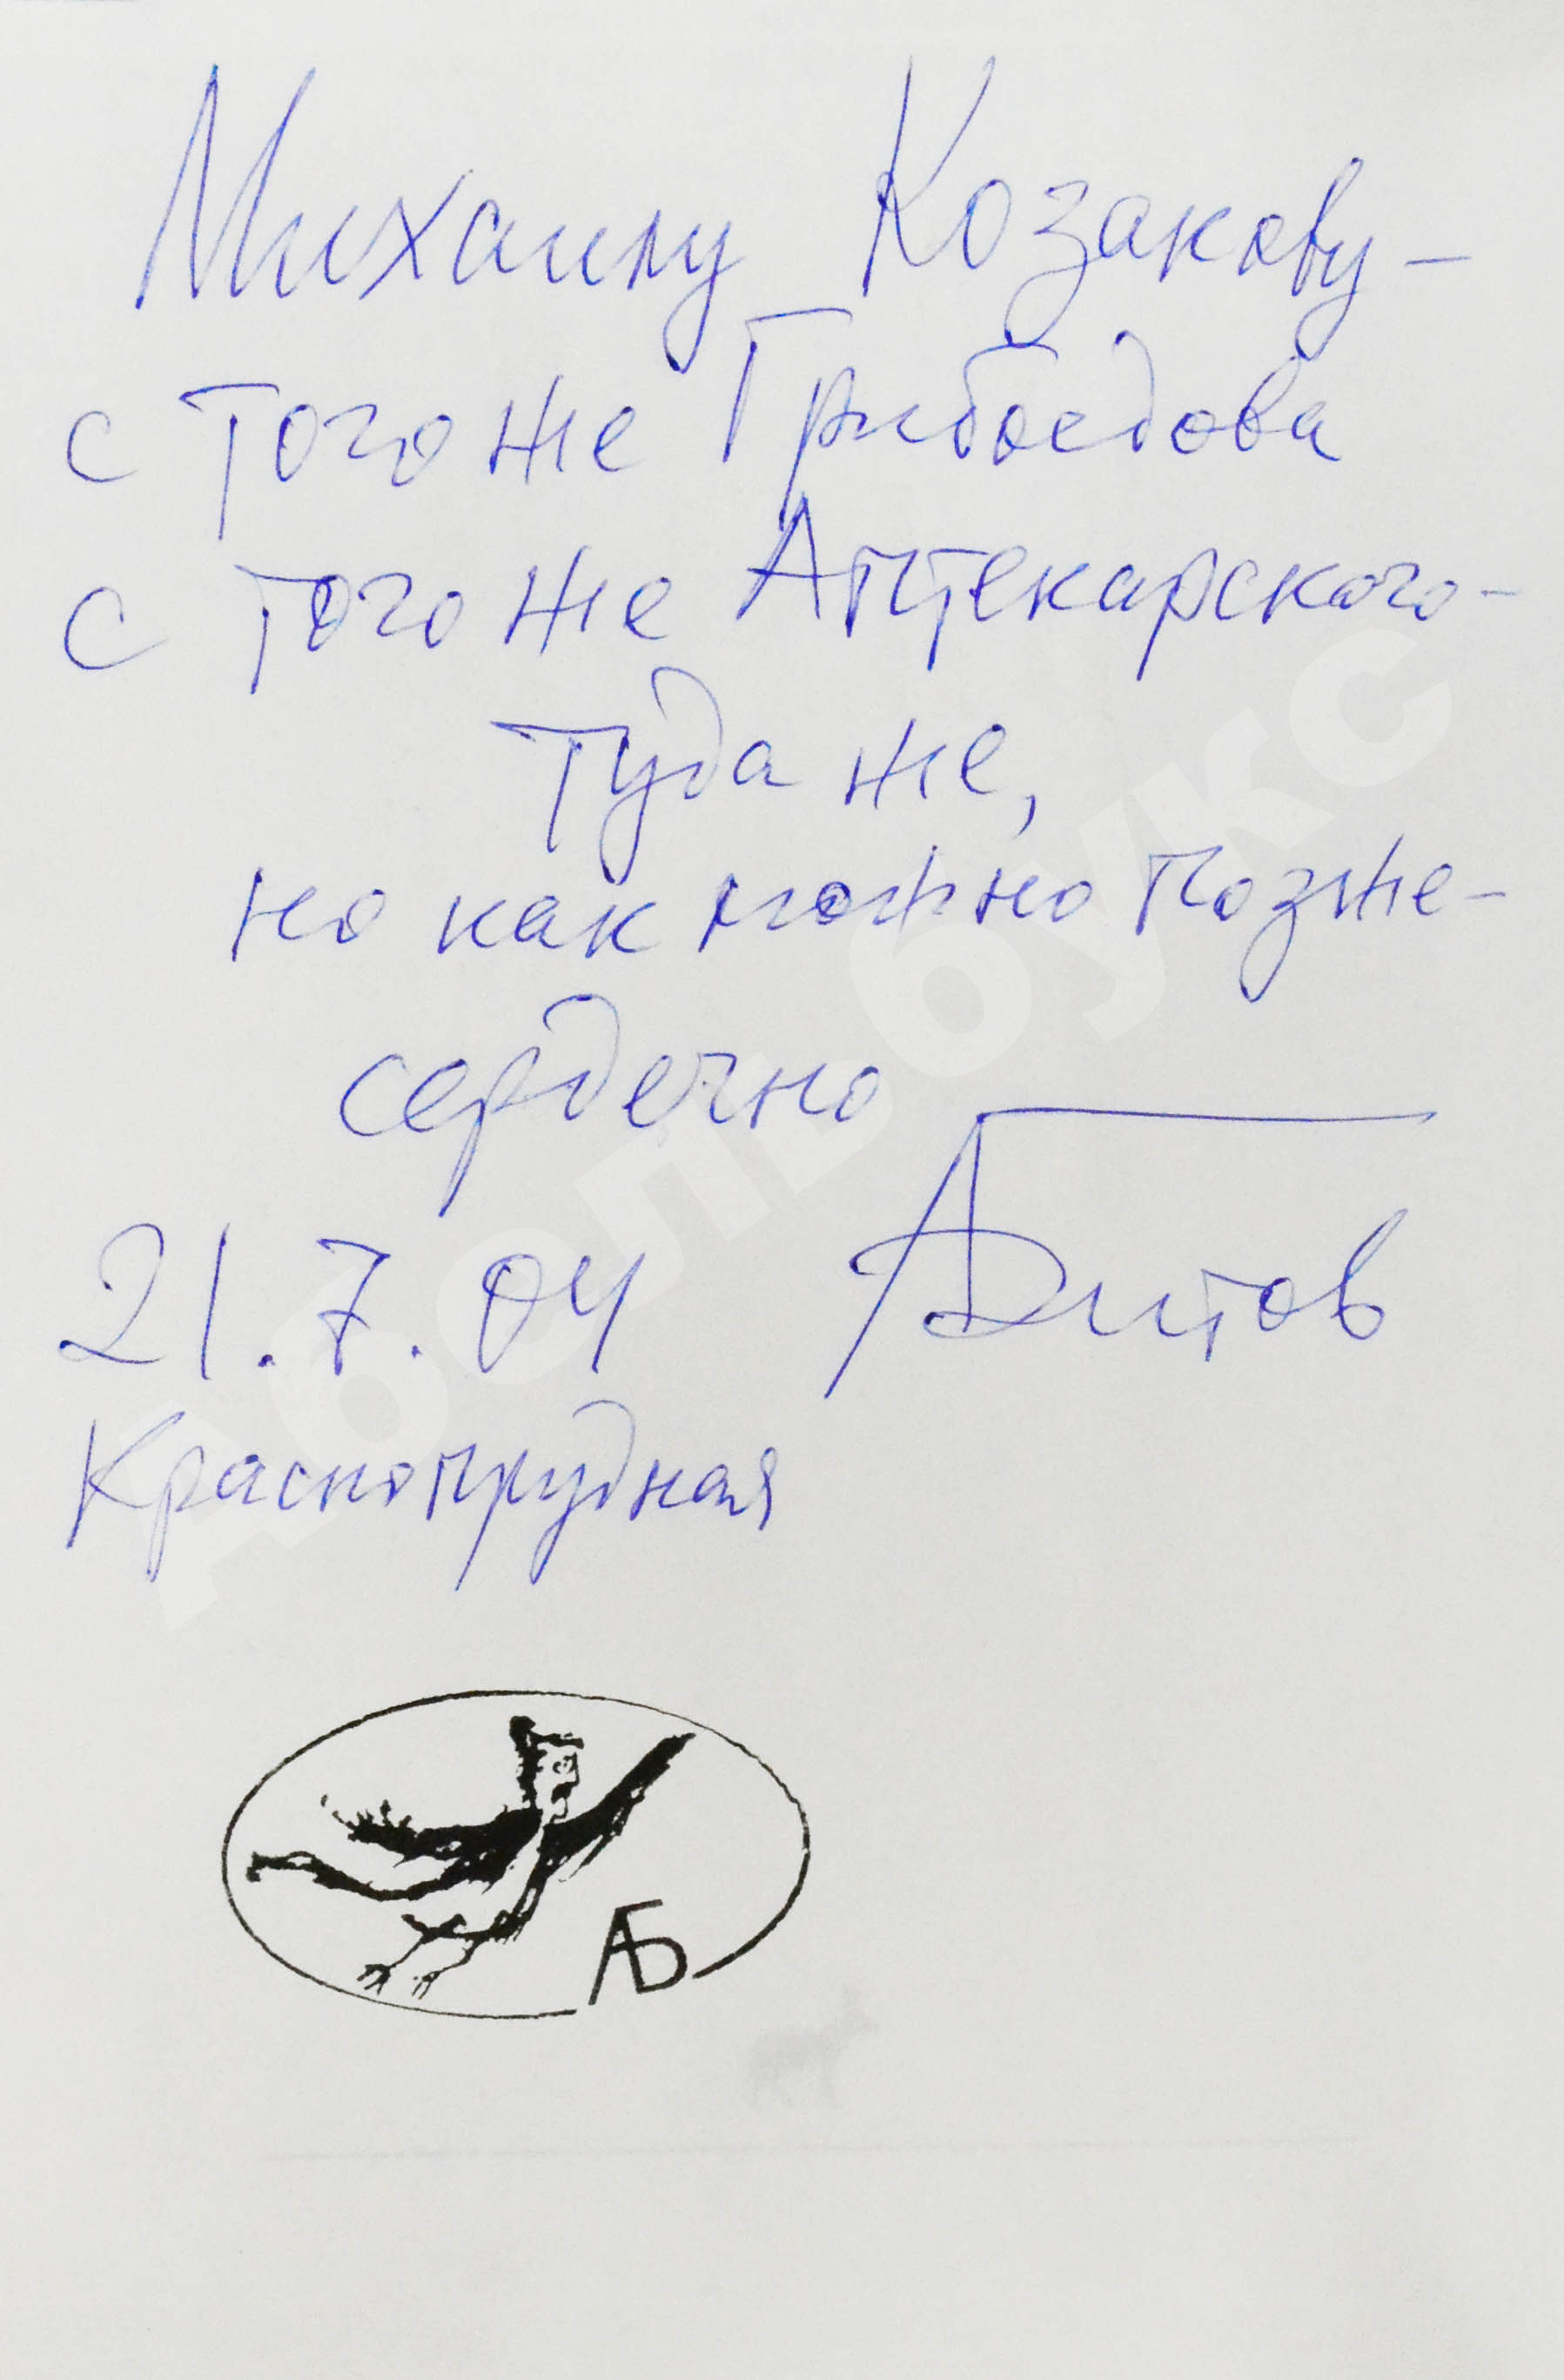 Михаилу Козакову –
с того же Грибоедова
с того же Аптекарского –
туда же,
но как можно позже –
сердечно
АБитов
21.7.04
Краснопрудная
АБ
Абельбукс